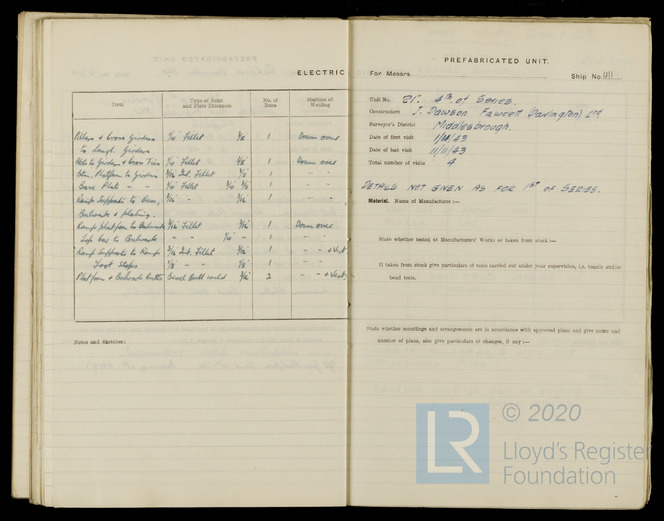 ELECTRIC
Item
Type of Joint and Plate Thickness
No. of Runs
Position of Welding
Pillars & Cross Girders 1/4" Fillet 1 Down over
to Longl. Girders
Girders & Cross Ties 1/4" Fillet 1 Down over
Platform to Girders Int. Fillet 1 " "
Base Plate - - 1/4" Fillet 1 " "
Ramp Supports to 3/16" " 1 " "
Bulwarks & plating.
Ramp platform to Bulwarks 3/16" Fillet 3/16" 1 Down over
bar to Bulwarks " " 1/4" " 1 " "
Ramp Supports to Ramp 3/16" Int. Fillet 1 " " & Vert.
Foot Stops 1/8" " " 1/8" 1 " "
Platform & Bulwark butts bevel butt weld 3/16" 2 " " & Vert.
Notes and Sketches:
PREFABRICATED UNIT.
For Messrs.
Ship No. 411
Unit No. 4th of Series.
Constructors J. Dawson Fawcett (Darlington) Ltd
Surveyor's District Middlesbrough.
Date of first visit
Date of last visit 11/11/43
Total number of visits 4
DETAILS NOT GIVEN AS FOR 1st OF SERIES.
Material. Name of Manufacturer:—
State whether tested at Manufacturers' Works or taken from stock:—
If taken from stock give particulars of tests carried out under your supervision, i.e. tensile and/or
bend tests.
State whether scantlings and arrangements are in accordance with approved plans and give name and
number of plans, also give particulars of changes, if any:—
© 2020
LR
Lloyd's Register
Foundation